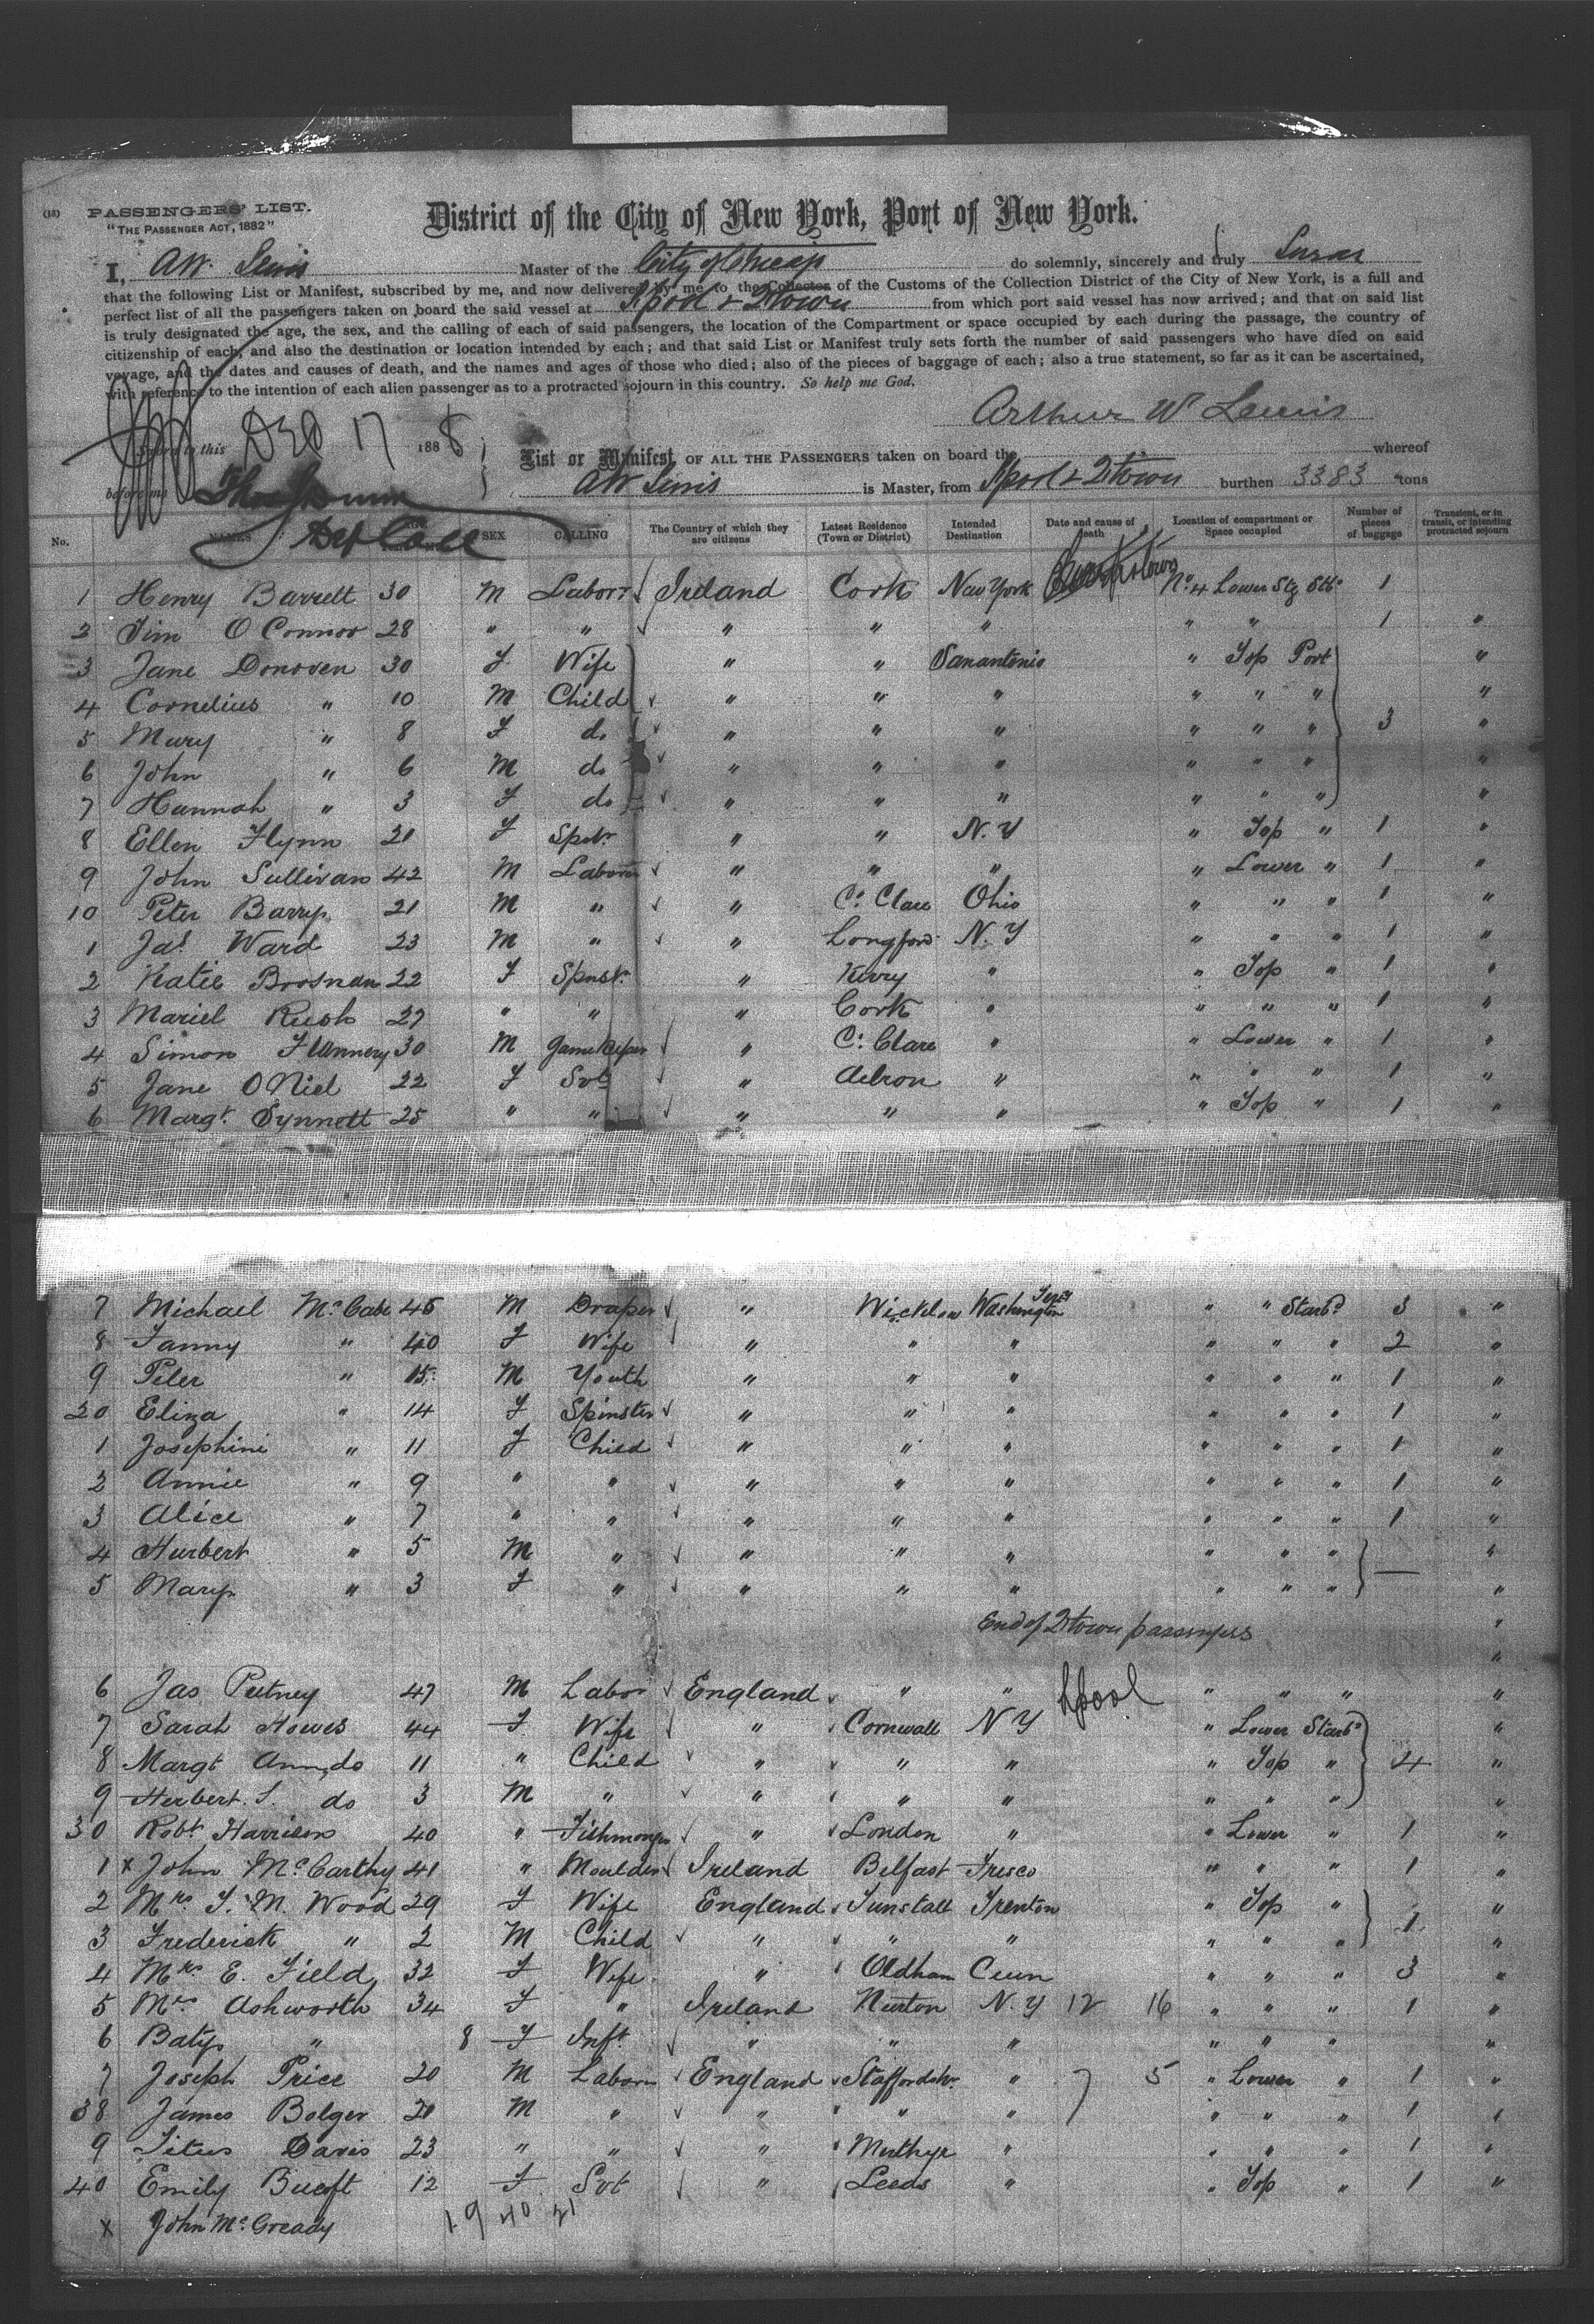 (18) PASSENGERS' LIST.
"THE PASSENGER ACT, 1882"
District of the City of New York, Port of New York.
I, A W. Lewis Master of the City of Chicago do solemnly, sincerely and truly Swear
that the following List or Manifest, subscribed by me, and now delivered by me to the Collector of the Customs of the Collection District of the City of New York, is a full and
perfect list of all the passengers taken on board the said vessel at Lpool & Qtown from which port said vessel has now arrived; and that on said list
is truly designated the age, the sex, and the calling of each of said passengers, the location of the Compartment or space occupied by each during the passage, the country of
citizenship of each, and also the destination or location intended by each; and that said List or Manifest truly sets forth the number of said passengers who have died on said
voyage, and the dates and causes of death, and the names and ages of those who died; also of the pieces of baggage of each; also a true statement, so far as it can be ascertained,
with reference to the intention of each alien passenger as to a protracted sojourn in this country. So help me God.
Arthur W Lewis
Sworn to this DEC 17 1888
List or Manifest OF ALL THE PASSENGERS taken on board the whereof
before me
A W Lewis is Master, from Lpool & Qtown burthen 3383 tons
No. NAMES AGE SEX CALLING The Country of which they are citizens Latest Residence (Town or District) Intended Destination Date and cause of death Location of compartment or Space occupied Number of pieces of baggage Transient, or in transit, or intending protracted sojourn
1 Henry Barrett 30 M Labor Ireland Cork New York Queenstown No 4 Lower Stg Stb 1
2 Tim O Connor 28 " " " " " " " 1 "
3 Jane Donoven 30 F Wife " " Sanantonio " Top Port "
4 Cornelius " 10 M Child " " " " " " "
5 Mary " 8 F do " " " " " " 3 "
6 John " 6 M do " " " " " " "
7 Hannah " 3 F do " " " " " " "
8 Ellen Flynn 21 F Spstr " " N.Y " Top " 1 "
9 John Sullivan 42 M Labour " " " " Lower " 1 "
10 Peter Barry 21 M " " Co Clare Ohio " " " 1 "
1 Jas Ward 23 M " " Longford N.Y " " " 1 "
2 Katie Brosnan 22 F Spnstr " Kerry " " Top " 1 "
3 Mariel Rush 27 " " " Cork " " " " 1 "
4 Simon Flannery 30 M Gamekeeper " Co Clare " " Lower " 1 "
5 Jane O Niel 22 F Svt " " " " " 1 "
6 Margt Synnott 25 " " " " " " Top " 1 "
7 Michael McCabe 45 M Draper " Wicklow Washington Terry " " Starbd 3 "
8 Fanny " 40 F Wife " " " " " " 2 "
9 Peter " 15 M Youth " " " " " " 1 "
20 Eliza " 14 F Spinster " " " " " " 1 "
1 Josephine " 11 F Child " " " " " " 1 "
2 Annie " 9 " " " " " " " " 1 "
3 Alice " 7 " " " " " " " " 1 "
4 Hurbert " 5 M " " " " " " " "
5 Mary " 3 F " " " " " " " — "
End of Qtown passengers "
"
6 Jas Putney 47 M Labor England " " Lpool " " " "
7 Sarah Howes 44 F Wife " Cornwall N Y " Lower Starbd "
8 Margt Ann do 11 " Child " " " " Top " 4 "
9 Herbert. S. do 3 M " " " " " " " "
30 Robt Harrison 40 " Fishmonger " London " " Lower " 1 "
1 x John McCarthy 41 " Moulder Ireland Belfast Fresco " " " 1 "
2 Mrs T. M. Wood 29 F Wife England Tunstall Trenton " Top " "
3 Frederick " 2 M Child " " " " " " 1 "
4 Mrs E. Field 32 F Wife " Oldham " " " 3 "
5 Mrs Ashworth 34 F " Ireland N. Y 12 16 " " " 1 "
6 " 8 F Inft " " " " " " "
7 Joseph Price 20 M Labour England Staffordshr " 7 5 " Lower " 1 "
38 James Bolger 21 M " " " " " " " 1 "
9 Titus Davis 23 " " " Merthyr " " " " 1 "
40 Emily 12 F Svt " Leeds " " Top " 1 "
x John McGready 19 40 21